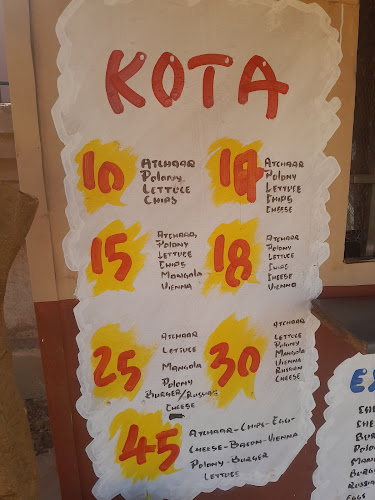 KOTA
10
ATCHAAR
POLONY
LETTUCE
CHIPS
14
ATCHAAR
POLONY
LETTUCE
CHIPS
CHEESE
15
ATCHAAR,
POLONY
LETTUCE
CHIPS
MANGOLA
VIENNA
18
ATCHAAR
POLONY
LETTUCE
CHIPS
CHEESE
VIENNA
25
ATCHAAR
LETTUCE
MANGOLA
POLONY
BURGER/RUSSIAN
CHEESE
30
ATCHAAR
LETTUCE
POLONY
MANGOLA
VIENNA
RUSSIAN
CHEESE
45
ATCHAAR-CHIPS-EGG-
CHEESE-BACON-VIENNA
POLONY-BURGER
LETTUCE